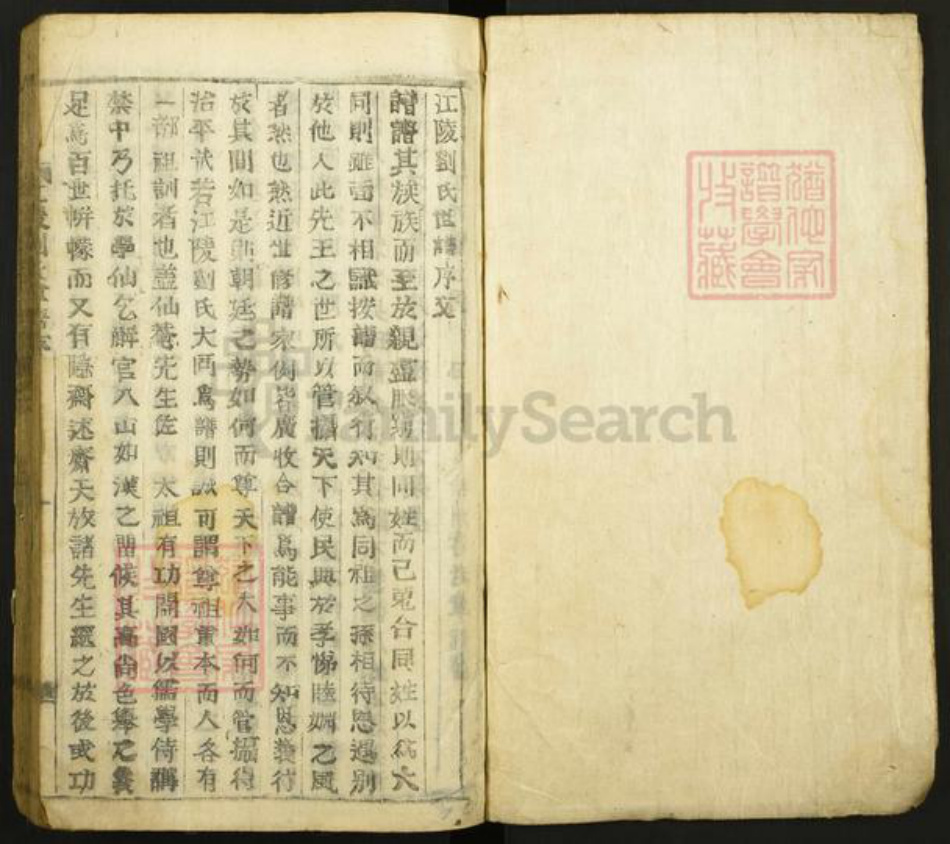 江陵劉氏世譜序文
譜譜其族族而至於親盡服窮則同姓而已蒐合同姓以爲大
同則雖面不相識按譜而叙行知其爲同祖之孫相待恩遇別
於他人此先王之世所以管攝天下使民興於孝悌睦婣之風
者然也然近世修譜家例皆廣收合譜爲能事而不知恩義行
於其間如是則朝廷之勢如何而尊天下之大如何而管攝得
治平哉若江陵劉氏大同爲譜則誠可謂尊祖重本而人各有
一部祖訓者也盖仙菴先生佐 太祖有功開國以儒學侍講
禁中乃托於學仙乞解官入山如漢之留候其高尙色擧之義
足爲百世帡幪而又有 齋述齋天放諸先生繼之於後或功
猶他家
譜學會
收藏
FamilySearch